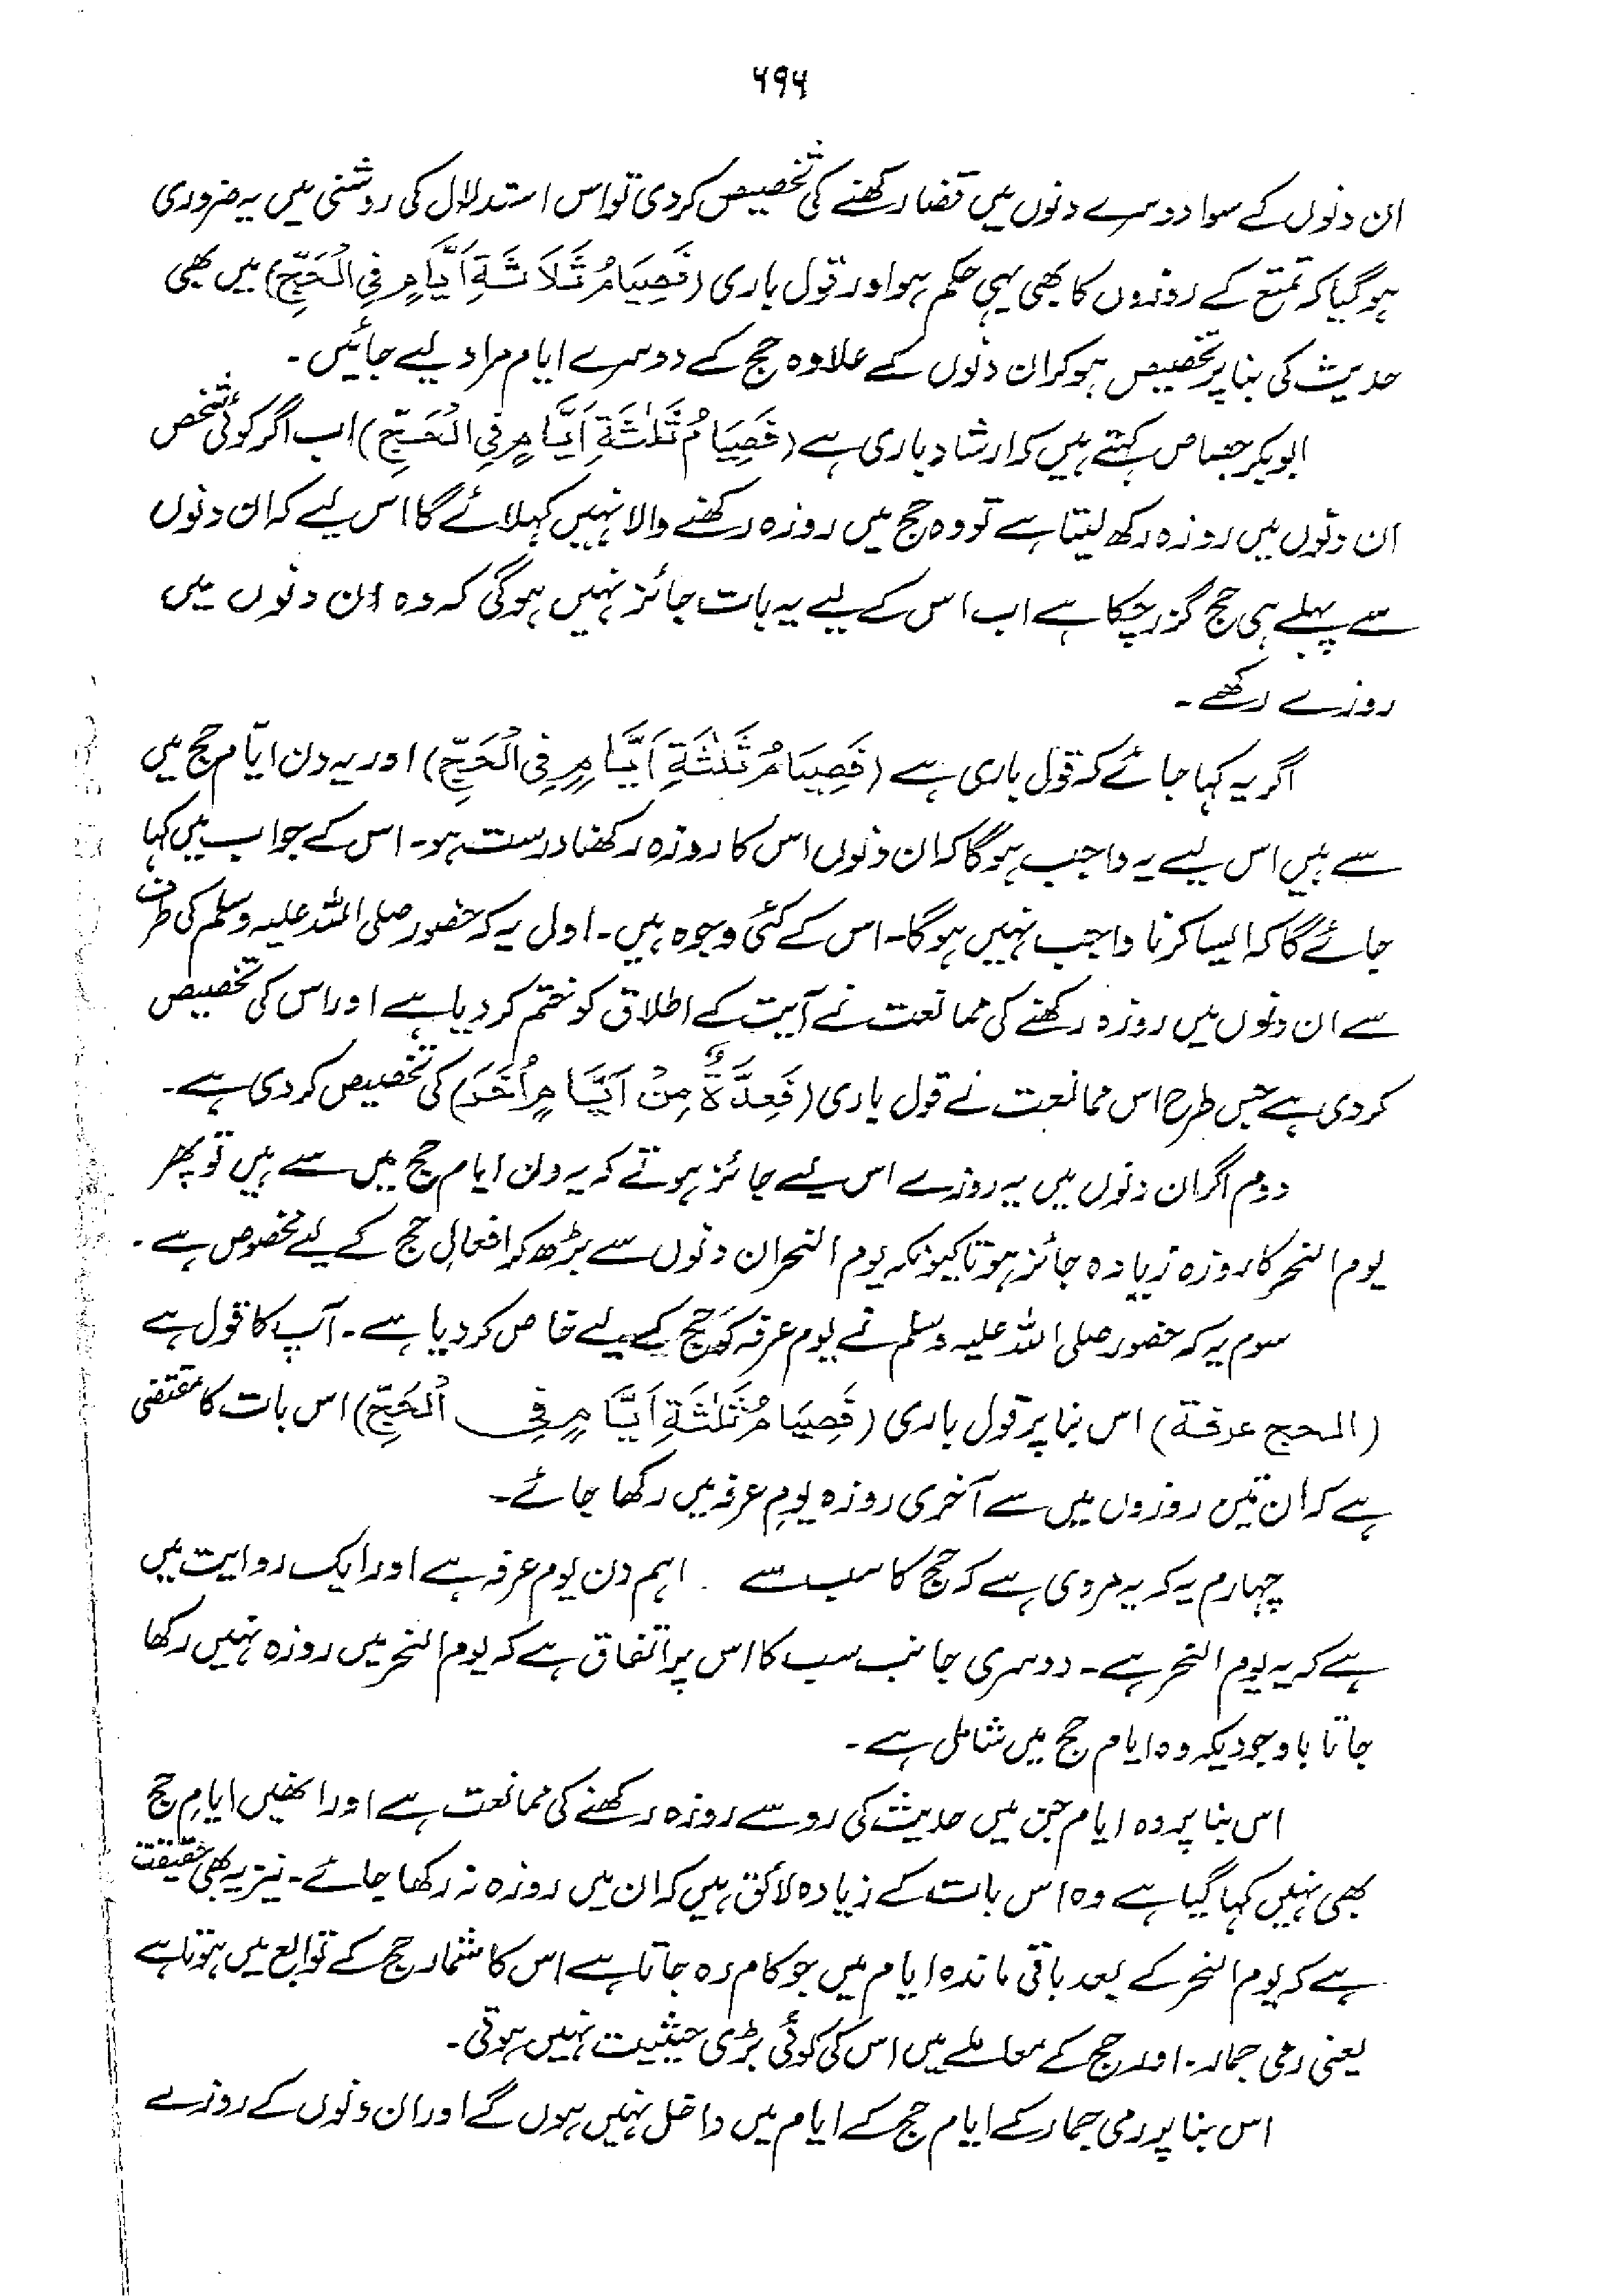 ۶۹۶
ان دنوں کے سوا دوسرے دنوں میں قضا رکھنے کی تخصیص کر دی تو اس استدلال کی روشنی میں یہ ضروری
ہو گیا کہ تمتع کے روزوں کا بھی یہی حکم ہو اور قول باری (فَصِيَامُ ثَلَاثَةِ اَيَّامٍ فِي الْحَجِّ) میں بھی
حدیث کی بنا پر تخصیص ہو کر ان دنوں کے علاوہ حج کے دوسرے ایام مراد لیے جائیں۔
ابوبکر جصاص کہتے ہیں کہ ارشاد باری ہے (فَصِيَامُ ثَلٰثَةِ اَيَّامٍ فِي الْحَجِّ) اب اگر کوئی شخص
ان دنوں میں روزہ رکھ لیتا ہے تو وہ حج میں روزہ رکھنے والا نہیں کہلائے گا اس لیے کہ ان دنوں
سے پہلے ہی حج گزر چکا ہے اب اس کے لیے یہ بات جائز نہیں ہوگی کہ وہ ان دنوں میں
روزے رکھے۔
اگر یہ کہا جائے کہ قول باری ہے (فَصِيَامُ ثَلٰثَةِ اَيَّامٍ فِي الْحَجِّ) اور یہ دن ایّام حج میں
سے ہیں اس لیے یہ واجب ہوگا کہ ان دنوں اس کا روزہ رکھنا درست ہو۔ اس کے جواب میں کہا
جائے گا کہ ایسا کرنا واجب نہیں ہوگا۔ اس کے کئی وجوہ ہیں۔ اول یہ کہ حضور صلی اللہ علیہ وسلم کی طرف
سے ان دنوں میں روزہ رکھنے کی ممانعت نے آیت کے اطلاق کو ختم کر دیا ہے اور اس کی تخصیص
کر دی ہے جس طرح اس ممانعت نے قول باری (فَعِدَّةٌ مِنْ اَيَّامٍ اُخَرَ) کی تخصیص کر دی ہے۔
دوم اگر ان دنوں میں یہ روزے اس لیے جائز ہوتے کہ یہ دن ایام حج میں سے ہیں تو پھر
یوم النحر کا روزہ زیادہ جائز ہوتا کیونکہ یوم النحر ان دنوں سے بڑھ کر افعالِ حج کے لیے مخصوص ہے۔
سوم یہ کہ حضور صلی اللہ علیہ وسلم نے یوم عرفہ کو حج کے لیے خاص کر دیا ہے۔ آپ کا قول ہے
(الحج عرفة) اس بنا پر قول باری (فَصِيَامُ ثَلٰثَةِ اَيَّامٍ فِي الْحَجِّ) اس بات کا مقتضی
ہے کہ ان تین روزوں میں سے آخری روزہ یومِ عرفہ میں رکھا جائے۔
چہارم یہ کہ یہ مروی ہے کہ حج کا سب سے اہم دن یوم عرفہ ہے اور ایک روایت میں
ہے کہ یہ یوم النحر ہے۔ دوسری جانب سب کا اس پر اتفاق ہے کہ یوم النحر میں روزہ نہیں رکھا
جاتا باوجودیکہ وہ ایام حج میں شامل ہے۔
اس بنا پر وہ ایام جن میں حدیث کی رو سے روزہ رکھنے کی ممانعت ہے اور انھیں ایامِ حج
بھی نہیں کہا گیا ہے وہ اس بات کے زیادہ لائق ہیں کہ ان میں روزہ نہ رکھا جائے۔ نیز یہ بھی حقیقت
ہے کہ یوم النحر کے بعد باقی ماندہ ایام میں جو کام رہ جاتا ہے اس کا شمار حج کے توابع میں ہوتا ہے
یعنی رمی جمار۔ اور حج کے معاملے میں اس کی کوئی بڑی حیثیت نہیں ہوتی۔
اس بنا پر رمی جمار کے ایام حج کے ایام میں داخل نہیں ہوں گے اور ان دنوں کے روزے